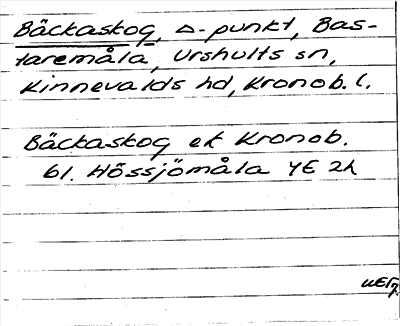 Bäckaskog, △-punkt, Bas-
taremåla, Urshults sn,
Kinnevalds hd, Kronob. l.
Bäckaskog ek Kronob.
bl. Hössjömåla 4E 2h